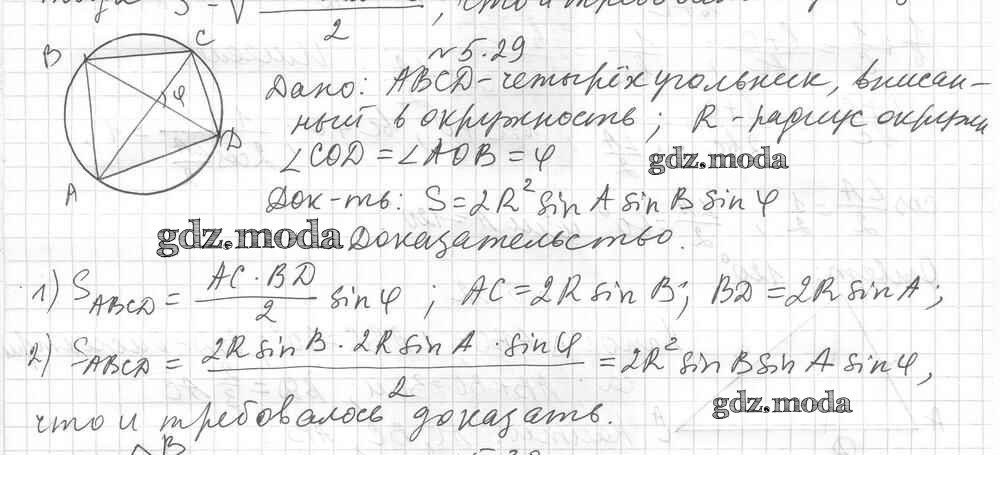 2
№5.29
B
C
Дано: ABCD-четырёхугольник, вписан-
φ
ный в окружность; R - радиус окружн
D
∠COD = ∠AOB = φ
gdz.moda
A
Док-ть: S = 2R² sin A sin B sin φ
gdz.moda
Доказательство.
1) S_ABCD = AC · BD / 2 sin φ ; AC = 2R sin B; BD = 2R sin A;
2) S_ABCD = 2R sin B · 2R sin A · sin φ / 2 = 2R² sin B sin A sin φ,
gdz.moda
что и требовалось доказать.
B